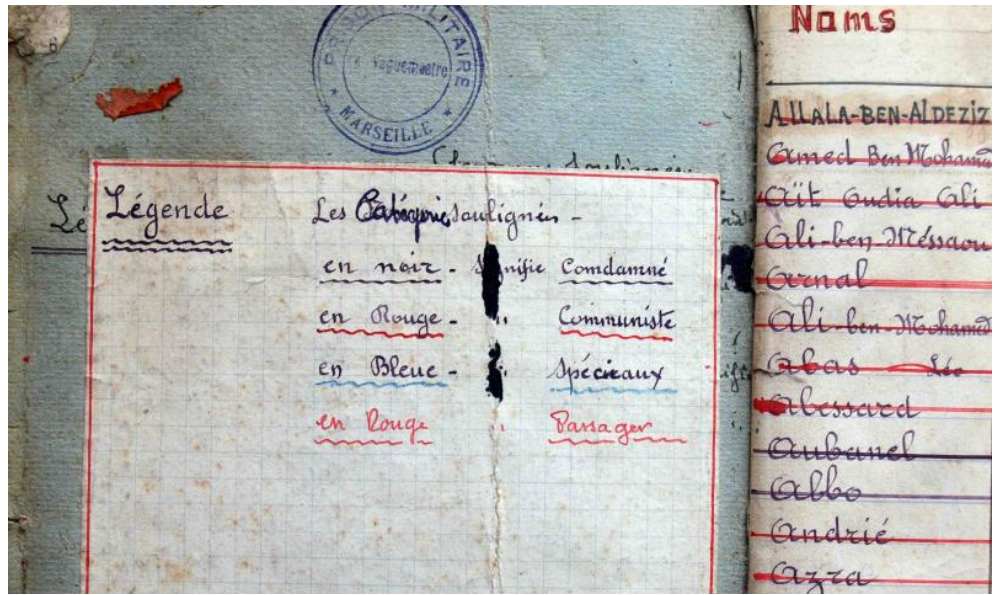 6
PRISON MILITAIRE
Le Vaguemestre
MARSEILLE
Légende
Les Catégories Soulignées -
en noir - Signifie Comdamné
en Rouge - " Communiste
en Bleue - " Spécieaux
en Rouge " Passager
Noms
ALLALA-BEN-ALDEZIZ
Amed Ben Mohamed
Aït Oudia Ali
Ali-ben-Méssaou
Arnal
Ali-ben-Mohamed
Abas Léo
Abessard
Aubanel
Abbo
Andrié
Azra